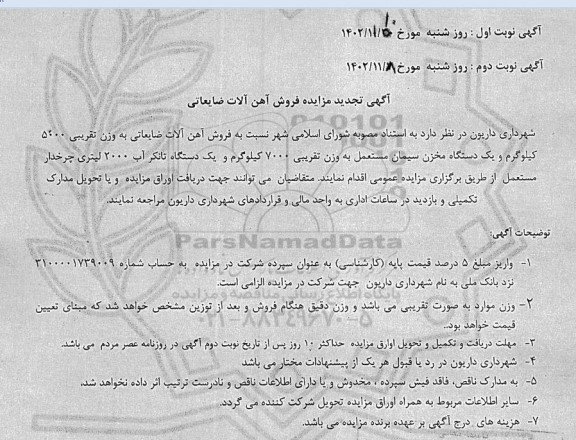 آگهی نوبت اول : روز شنبه مورخ ۱۴۰۲/۱۱/
آگهی نوبت دوم : روز شنبه مورخ ۱۴۰۲/۱۱/۸
آگهی تجدید مزایده فروش آهن آلات ضایعاتی
شهرداری داریون در نظر دارد به استناد مصوبه شورای اسلامی شهر نسبت به فروش آهن آلات ضایعاتی به وزن تقریبی ۵۴۰۰
کیلوگرم و یک دستگاه مخزن سیمان مستعمل به وزن تقریبی ۷۰۰۰ کیلوگرم و یک دستگاه تانکر آب ۲۰۰۰ لیتری چرخدار
مستعمل از طریق برگزاری مزایده عمومی اقدام نمایند. متقاضیان می توانند جهت دریافت اوراق مزایده و یا تحویل مدارک
تکمیلی و بازدید در ساعات اداری به واحد مالی و قراردادهای شهرداری داریون مراجعه نمایند.
ParsNamadData
توضیحات آگهی:
۱- واریز مبلغ ۵ درصد قیمت پایه (کارشناسی) به عنوان سپرده شرکت در مزایده به حساب شماره ۳۱۰۰۰۰۱۷۳۹۰۰۹
نزد بانک ملی به نام شهرداری داریون جهت شرکت در مزایده الزامی است.
پایگاه اطلاع رسانی مناقصه و مزایده
۲- وزن موارد به صورت تقریبی می باشد و وزن دقیق هنگام فروش و بعد از توزین مشخص خواهد شد که مبنای تعیین
قیمت خواهد بود..
۰۲۱-۸۸۳۴۹۶۷۰-۵
۳- مهلت دریافت و تکمیل و تحویل اوراق مزایده حداکثر ۱۰ روز پس از تاریخ نوبت دوم آگهی در روزنامه عصر مردم می باشد.
۴- شهرداری داریون در رد یا قبول هر یک از پیشنهادات مختار می باشد
۵- به مدارک ناقص، فاقد فیش سپرده ، مخدوش و یا دارای اطلاعات ناقص و نادرست ترتیب اثر داده نخواهد شد.
۶- سایر اطلاعات مربوط به همراه اوراق مزایده تحویل شرکت کننده می گردد.
۷- هزینه های درج آگهی بر عهده برنده مزایده می باشد.